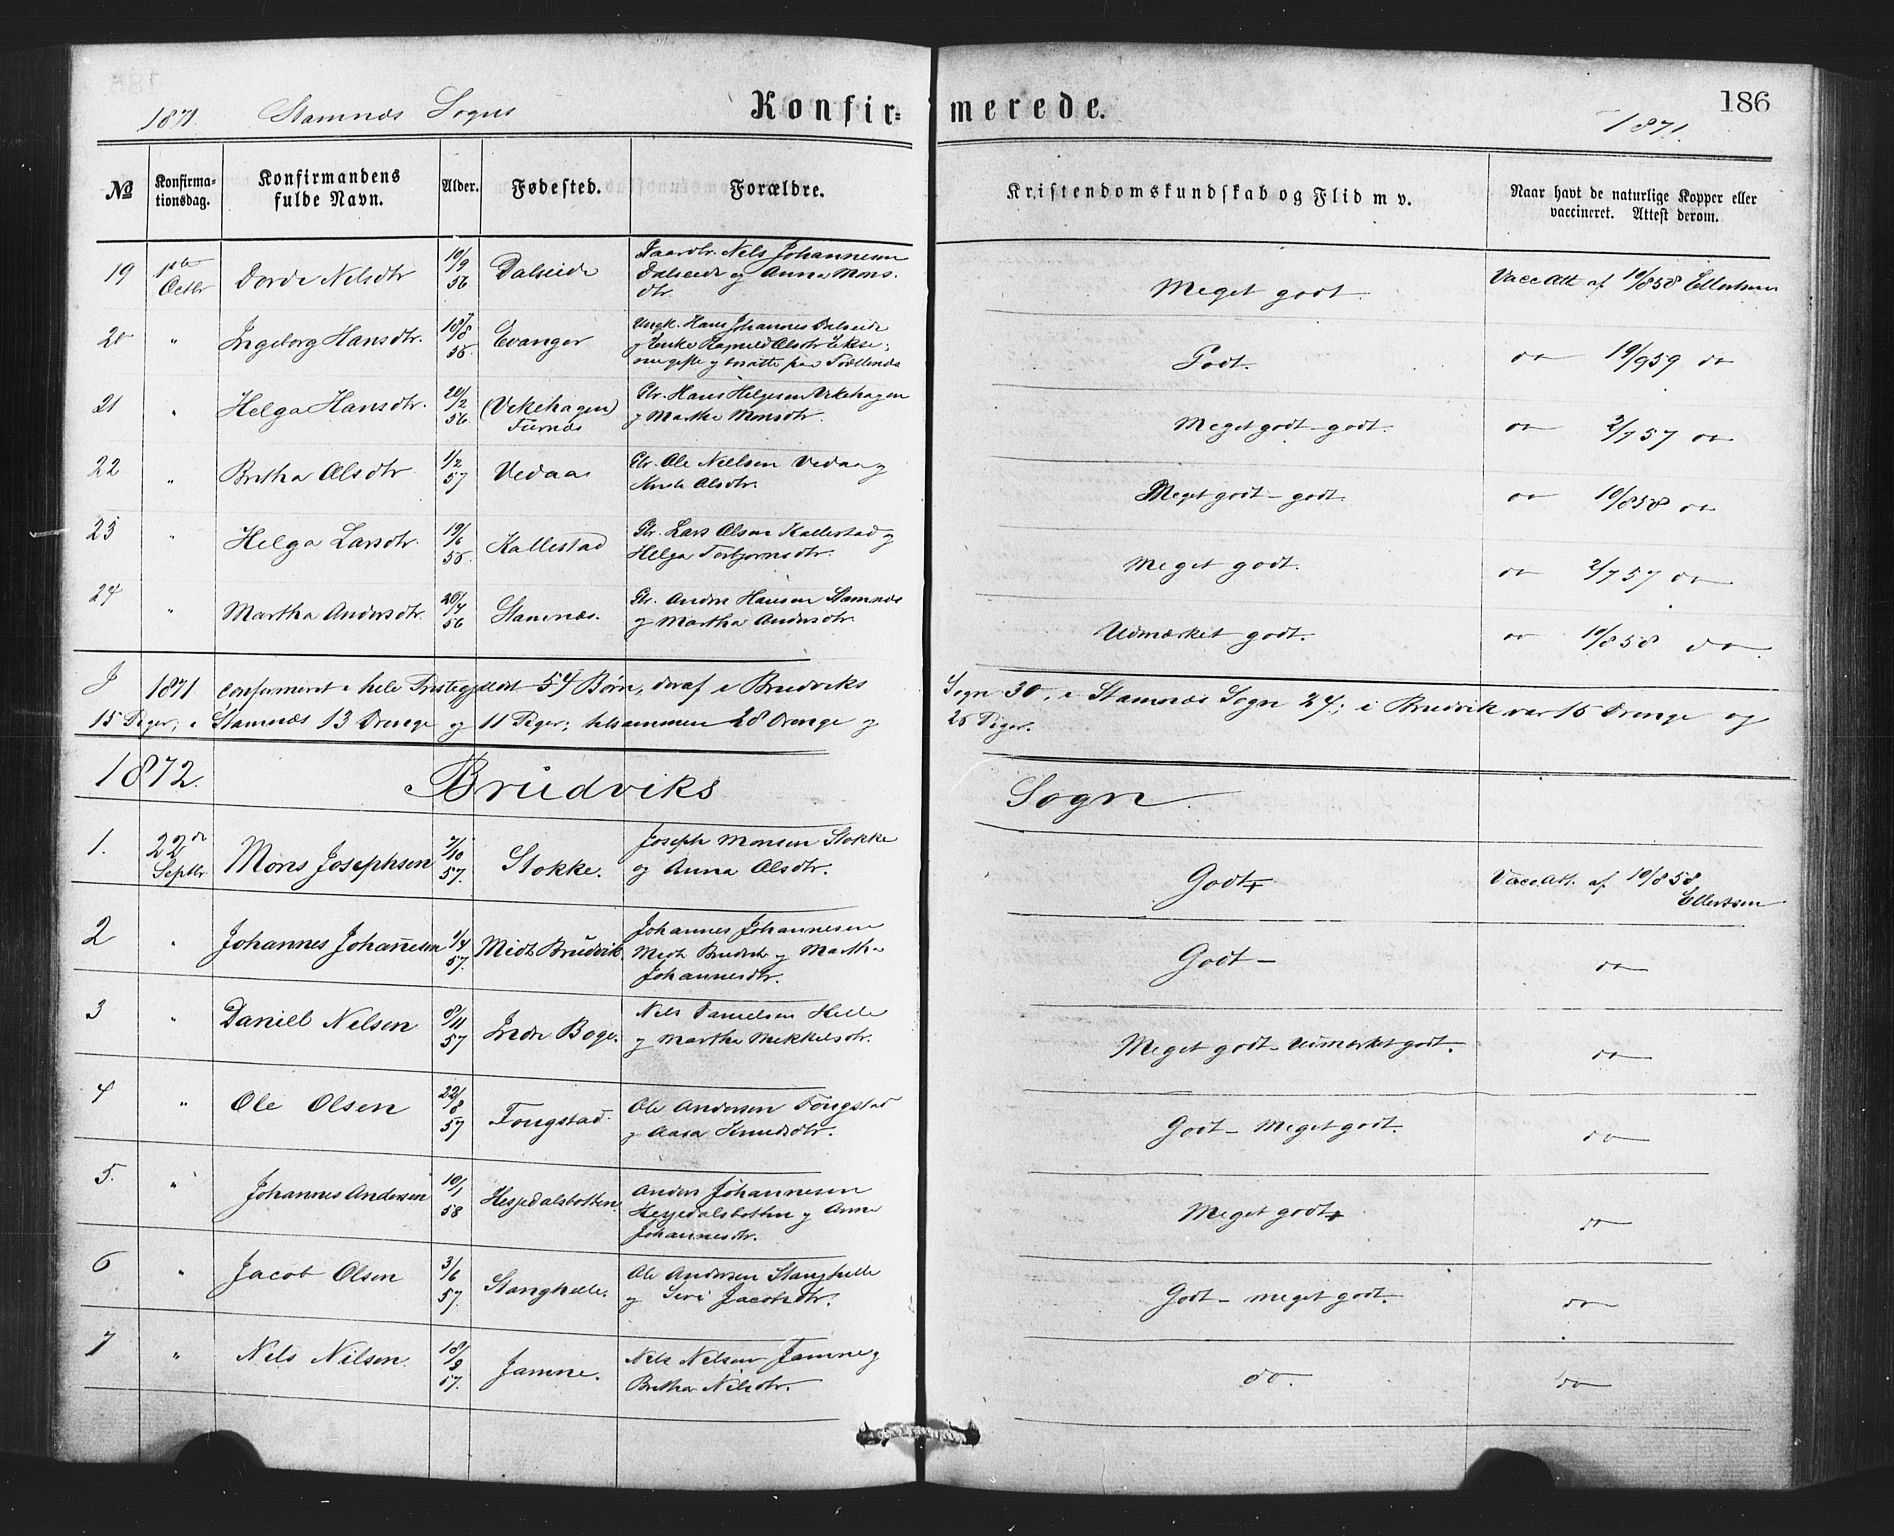 186
1871. Stamnæs Sogns Konfir= merede. 1871.
No Konfirma-tionsdag. Konfirmandens fulde Navn. Alder. Fødested. Forældre. Kristendomskundskab og Flid m v. Naar havt de naturlige Kopper eller vaccineret. Attest derom.
19 1ste Octbr Dorde Nelsdtr 10/9 56 Dalseide Gaardbr. Nels Johannesen
Dalseide og Anna Mons-
dtr. Meget godt. Vacc Att af 10/8 58 Ellertsen
20 " Ingeborg Hansdtr. 18/8 56. Evanger Ungk. Hans Johannes Dalseide
og Enke Ragnild Olsdtr Ekse;
Godt. do 19/9 59 do
21 " Helga Hansdtr. 20/2 56 (Vekehagen)
Fürnæs Gbr. Hans Helgesen Vikehagen
og Martha Monsdtr. Meget godt - godt. do 2/7 57 do
22 " Britha Olsdtr 1/2 57 Vedaas Gbr. Ole Nielsen Vedaas og
Anna Olsdtr. Meget godt - godt. do 10/8 58 do
23 " Helga Larsdtr. 19/6 56. Kallestad Gbr. Lars Olsen Kallestad og
Helga Torbjørnsdtr. Meget godt. do 2/7 57 do
24 " Martha Andersdtr. 20/4 56 Stamnæs. Gbr. Anders Hansen Stamnæs
og Martha Andersdtr. Udmærket godt. do 10/8 58 do
I 1871 confirmeret i hele Præstegjeldet 54 Børn, deraf i Brudviks Sogn 30, i Stamnæs Sogn 24; i Brudvik var 15 Drenge og
15 Piger; i Stamnæs 13 Drenge og 11 Piger; tilsammen 28 Drenge og 26 Piger.
1872. Brudviks Sogn.
1. 22de Septbr Mons Josephsen 7/10 57. Stokke. Joseph Monsen Stokke
og Anna Olsdtr. Godt + Vacc. Att. af 10/8 58
Ellertsen
2 " Johannes Johannesen 1/4 57. Midt Brudvik. Johannes Johannesen
Midt Brudvik og Martha
Johannesdtr. Godt - do
3 " Daniel Nelsen 8/11 57 Indre Boge. Nels Danielsen Helle
og Martha Mikkelsdtr. Meget godt - Udmærket godt. do
4 " Ole Olsen 22/8 57 Fougstad Ole Andersen Fougstad
og Aasa Knudsdtr. Godt - Meget godt. do
5. " Johannes Andersen 10/1 58 Hesjedalsbotten Anders Johannesen
Hesjedalsbotten og Anna
Johannesdtr. Meget godt + do
6 " Jacob Olsen 3/6 57. Stanghelle. Ole Andersen Stanghelle
og Siri Jacobsdtr. Godt - meget godt. do
7 " Nels Nilsen. 18/9 57. Jamne. Nels Nelsen Jamne og
Britha Nilsdtr. do. do